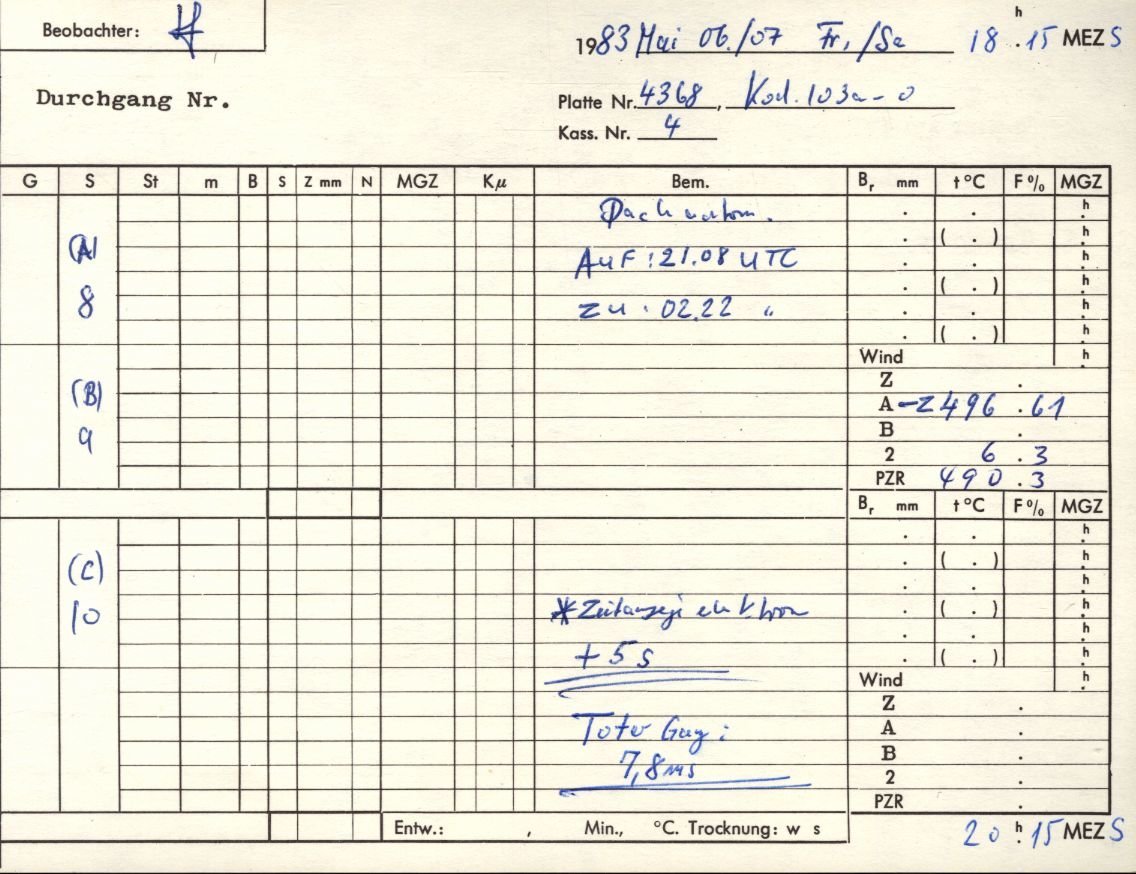 Beobachter:
1983 Mai 06./07 Fr,/Sa 18 h . 15 MEZ S
Durchgang Nr.
Platte Nr. 4368, Kod. 103a-0
Kass. Nr. 4
G S St m B S Z mm N MGZ Kμ Bem. Br mm t °C F % MGZ
Dach . . h
(A) . ( . ) h
AUF : 21.08 UTC . . h
8 . ( . ) h
ZU : 02.22 " . . h
. ( . ) h
Wind . h
Z .
(B) A -2496 . 61
9 B .
2 6 . 3
PZR 490 . 3
Br mm t °C F % MGZ
. . h
(C) . ( . ) h
. . h
10 * Zeitanzeige elektron . ( . ) h
. . h
+ 5 s . ( . ) h
Wind . h
Z .
Toter Gang : A .
7,8 ms B .
2 .
PZR .
Entw.: , Min., °C. Trocknung: w s
20 h . 15 MEZ S